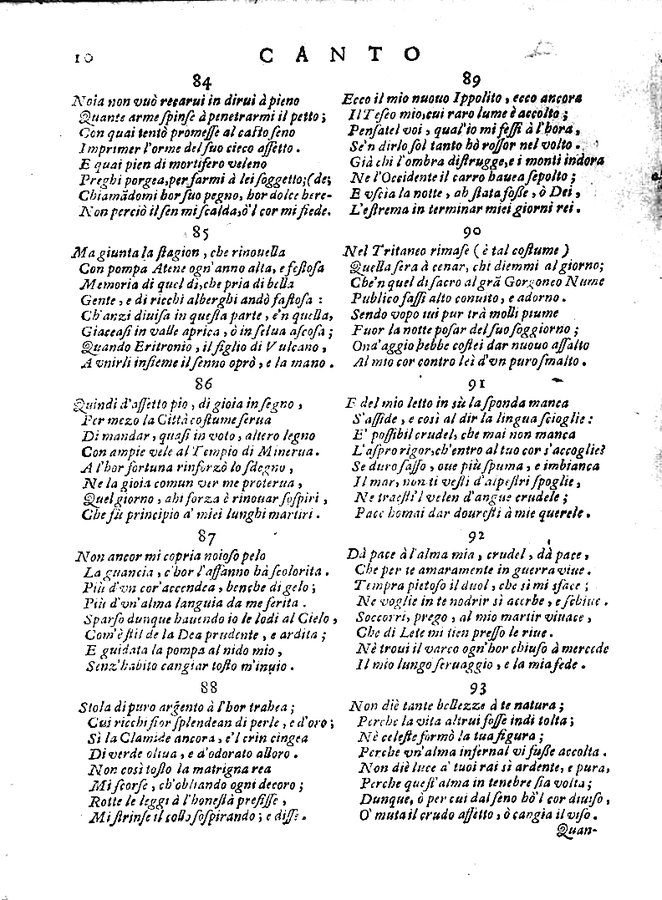 10
CANTO
84
Noia non vuò recarui in dirui à pieno
Quante arme spinse à penetrarmi il petto;
Con quai tentò promesse al casto seno
Imprimer l'orme del suo cieco affetto.
E quai pien di mortifero veleno
Preghi porgea, per farmi à lei soggetto; (de;
Chiamãdomi hor suo pegno, hor dolce bere-
Non perciò il sen mi scalda, ò'l cor mi fiede.
85
Ma giunta la stagion, che rinouella
Con pompa Atene ogn'anno alta, e festosa
Memoria di quel dì, che pria di bella
Gente, e di ricchi alberghi andò fastosa:
Ch'anzi diuisa in questa parte, e'n quella,
Giaceasi in valle aprica, ò in selua ascosa;
Quando Eritronio, il figlio di Vulcano,
A vnirli insieme il senno oprò, e la mano.
86
Quindi d'affetto pio, di gioia in segno,
Per mezo la Città costume serua
Di mandar, quasi in voto, altero legno
Con ampie vele al Tempio di Minerua.
A l'hor fortuna rinforzò lo sdegno,
Ne la gioia comun ver me proterua,
Quel giorno, ahi forza è rinouar sospiri,
Che fù principio a' miei lunghi martiri.
87
Non ancor mi copria noioso pelo
La guancia, c'hor l'affanno hà scolorita.
Più d'vn cor'accendea, benche di gelo;
Più d'vn'alma languia da me ferita.
Sparso dunque hauendo io le lodi al Cielo,
Com'è stil de la Dea prudente, e ardita;
E guidata la pompa al nido mio,
Senz'habito cangiar tosto m'inuio.
88
Stola di puro argento à l'hor trahea;
Cui ricchi fior splendean di perle, e d'oro;
Sì la Clamide ancora, e'l crin cingea
Di verde oliua, e d'odorato alloro.
Non così tosto la matrigna rea
Mi scorse, ch'obliando ogni decoro;
Rotte le leggi à l'honestà prefisse,
Mi strinse il collo sospirando; e disse.
89
Ecco il mio nuouo Ippolito, ecco ancora
Il Teseo mio, cui raro lume è accolto;
Pensatel voi, qual'io mi fessi à l'hora,
Se'n dirlo sol tanto hò rossor nel volto.
Già chi l'ombra distrugge, e i monti indora
Ne l'Occidente il carro hauea sepolto;
E vscia la notte, ah stata fosse, ò Dei,
L'estrema in terminar miei giorni rei.
90
Nel Tritaneo rimase (è tal costume)
Quella sera à cenar, chi diemmi al giorno;
Che'n quel dì sacro al grã Gorgoneo Nume
Publico fassi alto conuito, e adorno.
Sendo vopo iui pur trà molli piume
Fuor la notte posar del suo soggiorno;
Ond'aggio hebbe costei dar nuouo assalto
Al mio cor contro lei d'vn puro smalto.
91
E del mio letto in sù la sponda manca
S'asside, e così al dir la lingua scioglie:
E' possibil crudel, che mai non manca
L'aspro rigor, ch'entro al tuo cor s'accoglie?
Se duro sasso, oue più spuma, e imbianca
Il mar, non ti vestì d'alpestri spoglie,
Ne traesti'l velen d'angue crudele;
Pace homai dar douresti à mie querele.
92
Dà pace à l'alma mia, crudel, dà pace,
Che per te amaramente in guerra viue.
Tempra pietoso il duol, che sì mi sface;
Ne voglie in te nodrir sì acerbe, e schiue.
Soccorri, prego, al mio martir viuace,
Che di Lete mi tien presso le riue.
Nè troui il varco ogn'hor chiuso à mercede
Il mio lungo seruaggio, e la mia fede.
93
Non diè tante bellezze à te natura;
Perche la vita altrui fosse indi tolta;
Nè celeste formò la tua figura;
Perche vn'alma infernal vi fusse accolta.
Non diè luce a' tuoi rai sì ardente, e pura,
Perche quest'alma in tenebre sia volta;
Dunque, ò per cui dal seno hò'l cor diuiso,
O' muta il crudo affetto, ò cangia il viso.
Quan-